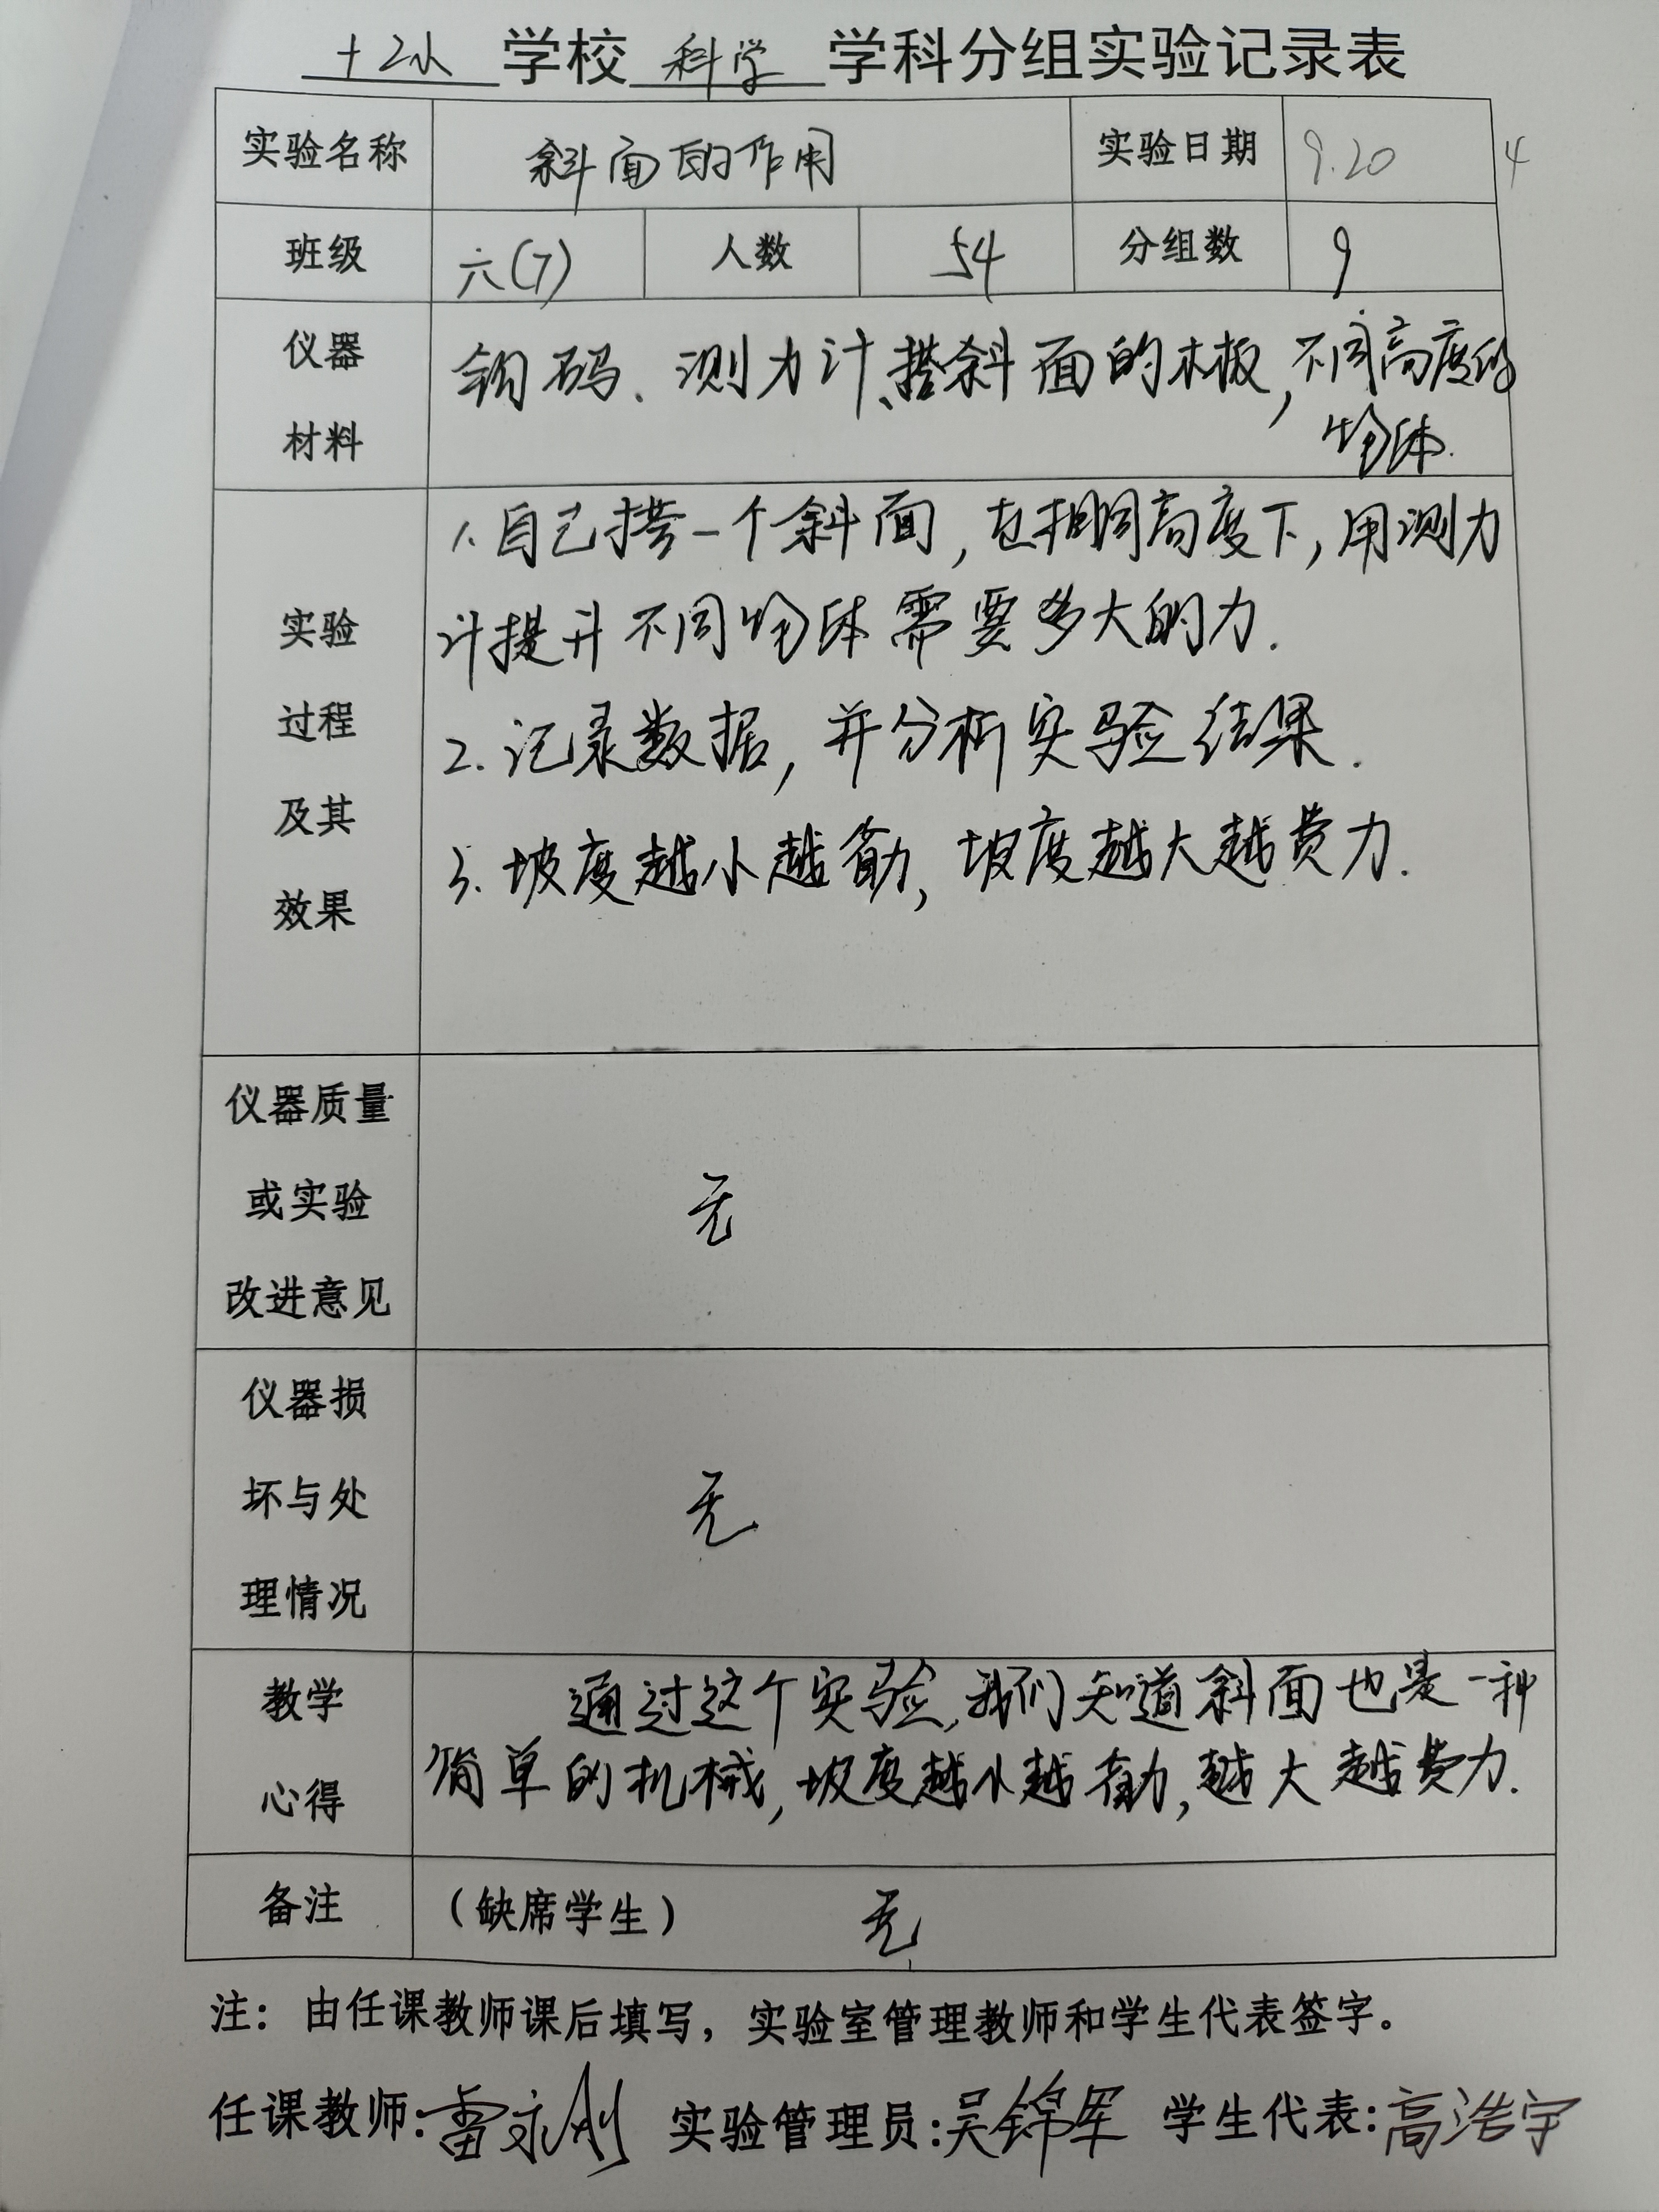 十二小 学校 科学 学科分组实验记录表
实验名称 斜面的作用 实验日期 9.20 4
班级 六(7) 人数 54 分组数 9
仪器
材料
钩码、测力计、搭斜面的木板,不同高度的
物体.
实验
过程
及其
效果
1.自己搭一个斜面,在相同高度下,用测力
计提升不同物体需要多大的力.
2.记录数据,并分析实验结果.
3.坡度越小越省力,坡度越大越费力.
仪器质量
或实验
改进意见
无
仪器损
坏与处
理情况
无
教学
心得
通过这个实验,我们知道斜面也是一种
简单的机械,坡度越小越省力,越大越费力.
备注 (缺席学生) 无
注：由任课教师课后填写，实验室管理教师和学生代表签字。
任课教师:雷永刚 实验管理员:吴锦军 学生代表:高浩宇